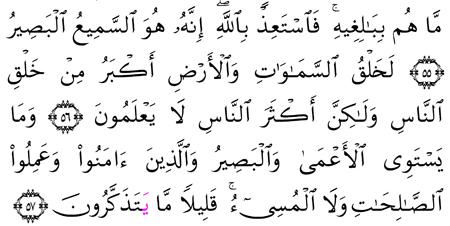 مَّا هُم بِبَـٰلِغِيهِ ۚ فَٱسْتَعِذْ بِٱللَّهِ ۖ إِنَّهُۥ هُوَ ٱلسَّمِيعُ ٱلْبَصِيرُ
۝٥٥ لَخَلْقُ ٱلسَّمَـٰوَٰتِ وَٱلْأَرْضِ أَكْبَرُ مِنْ خَلْقِ
ٱلنَّاسِ وَلَـٰكِنَّ أَكْثَرَ ٱلنَّاسِ لَا يَعْلَمُونَ ۝٥٦ وَمَا
يَسْتَوِى ٱلْأَعْمَىٰ وَٱلْبَصِيرُ وَٱلَّذِينَ ءَامَنُوا۟ وَعَمِلُوا۟
ٱلصَّـٰلِحَـٰتِ وَلَا ٱلْمُسِىٓءُ ۚ قَلِيلًا مَّا يَتَذَكَّرُونَ ۝٥٧